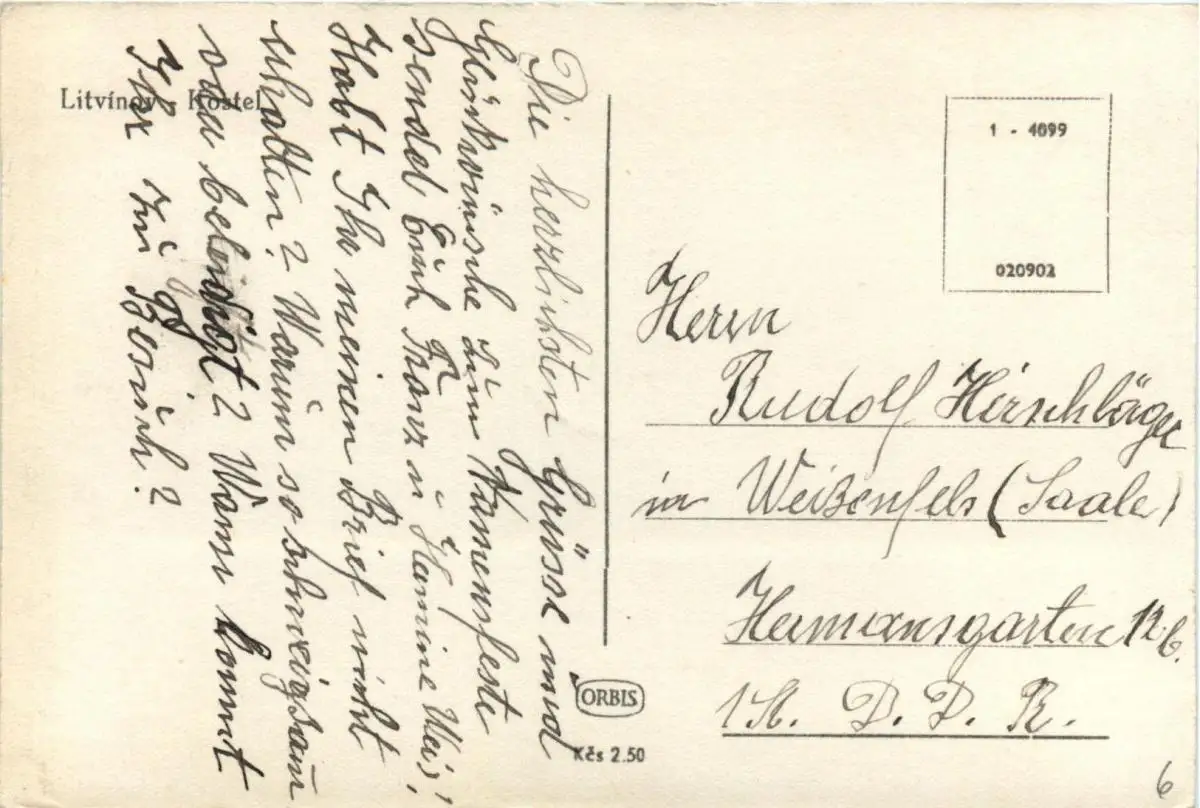 Litvínov - Kostel
Die herzlichsten Grüsse und
Glükwünsche zum Namensfeste
sendet Euch Franz u
Habt Ihr meinen Brief nicht
erhalten? Warum so schweigsam
oder beleidigt? Wann komt
Ihr zu Besuch?
1 - 4099
020902
Herrn
Rudolf
in Weißenfels (Saale)
12 b.
1 St. D. D. R.
ORBIS
Kčs 2.50
6